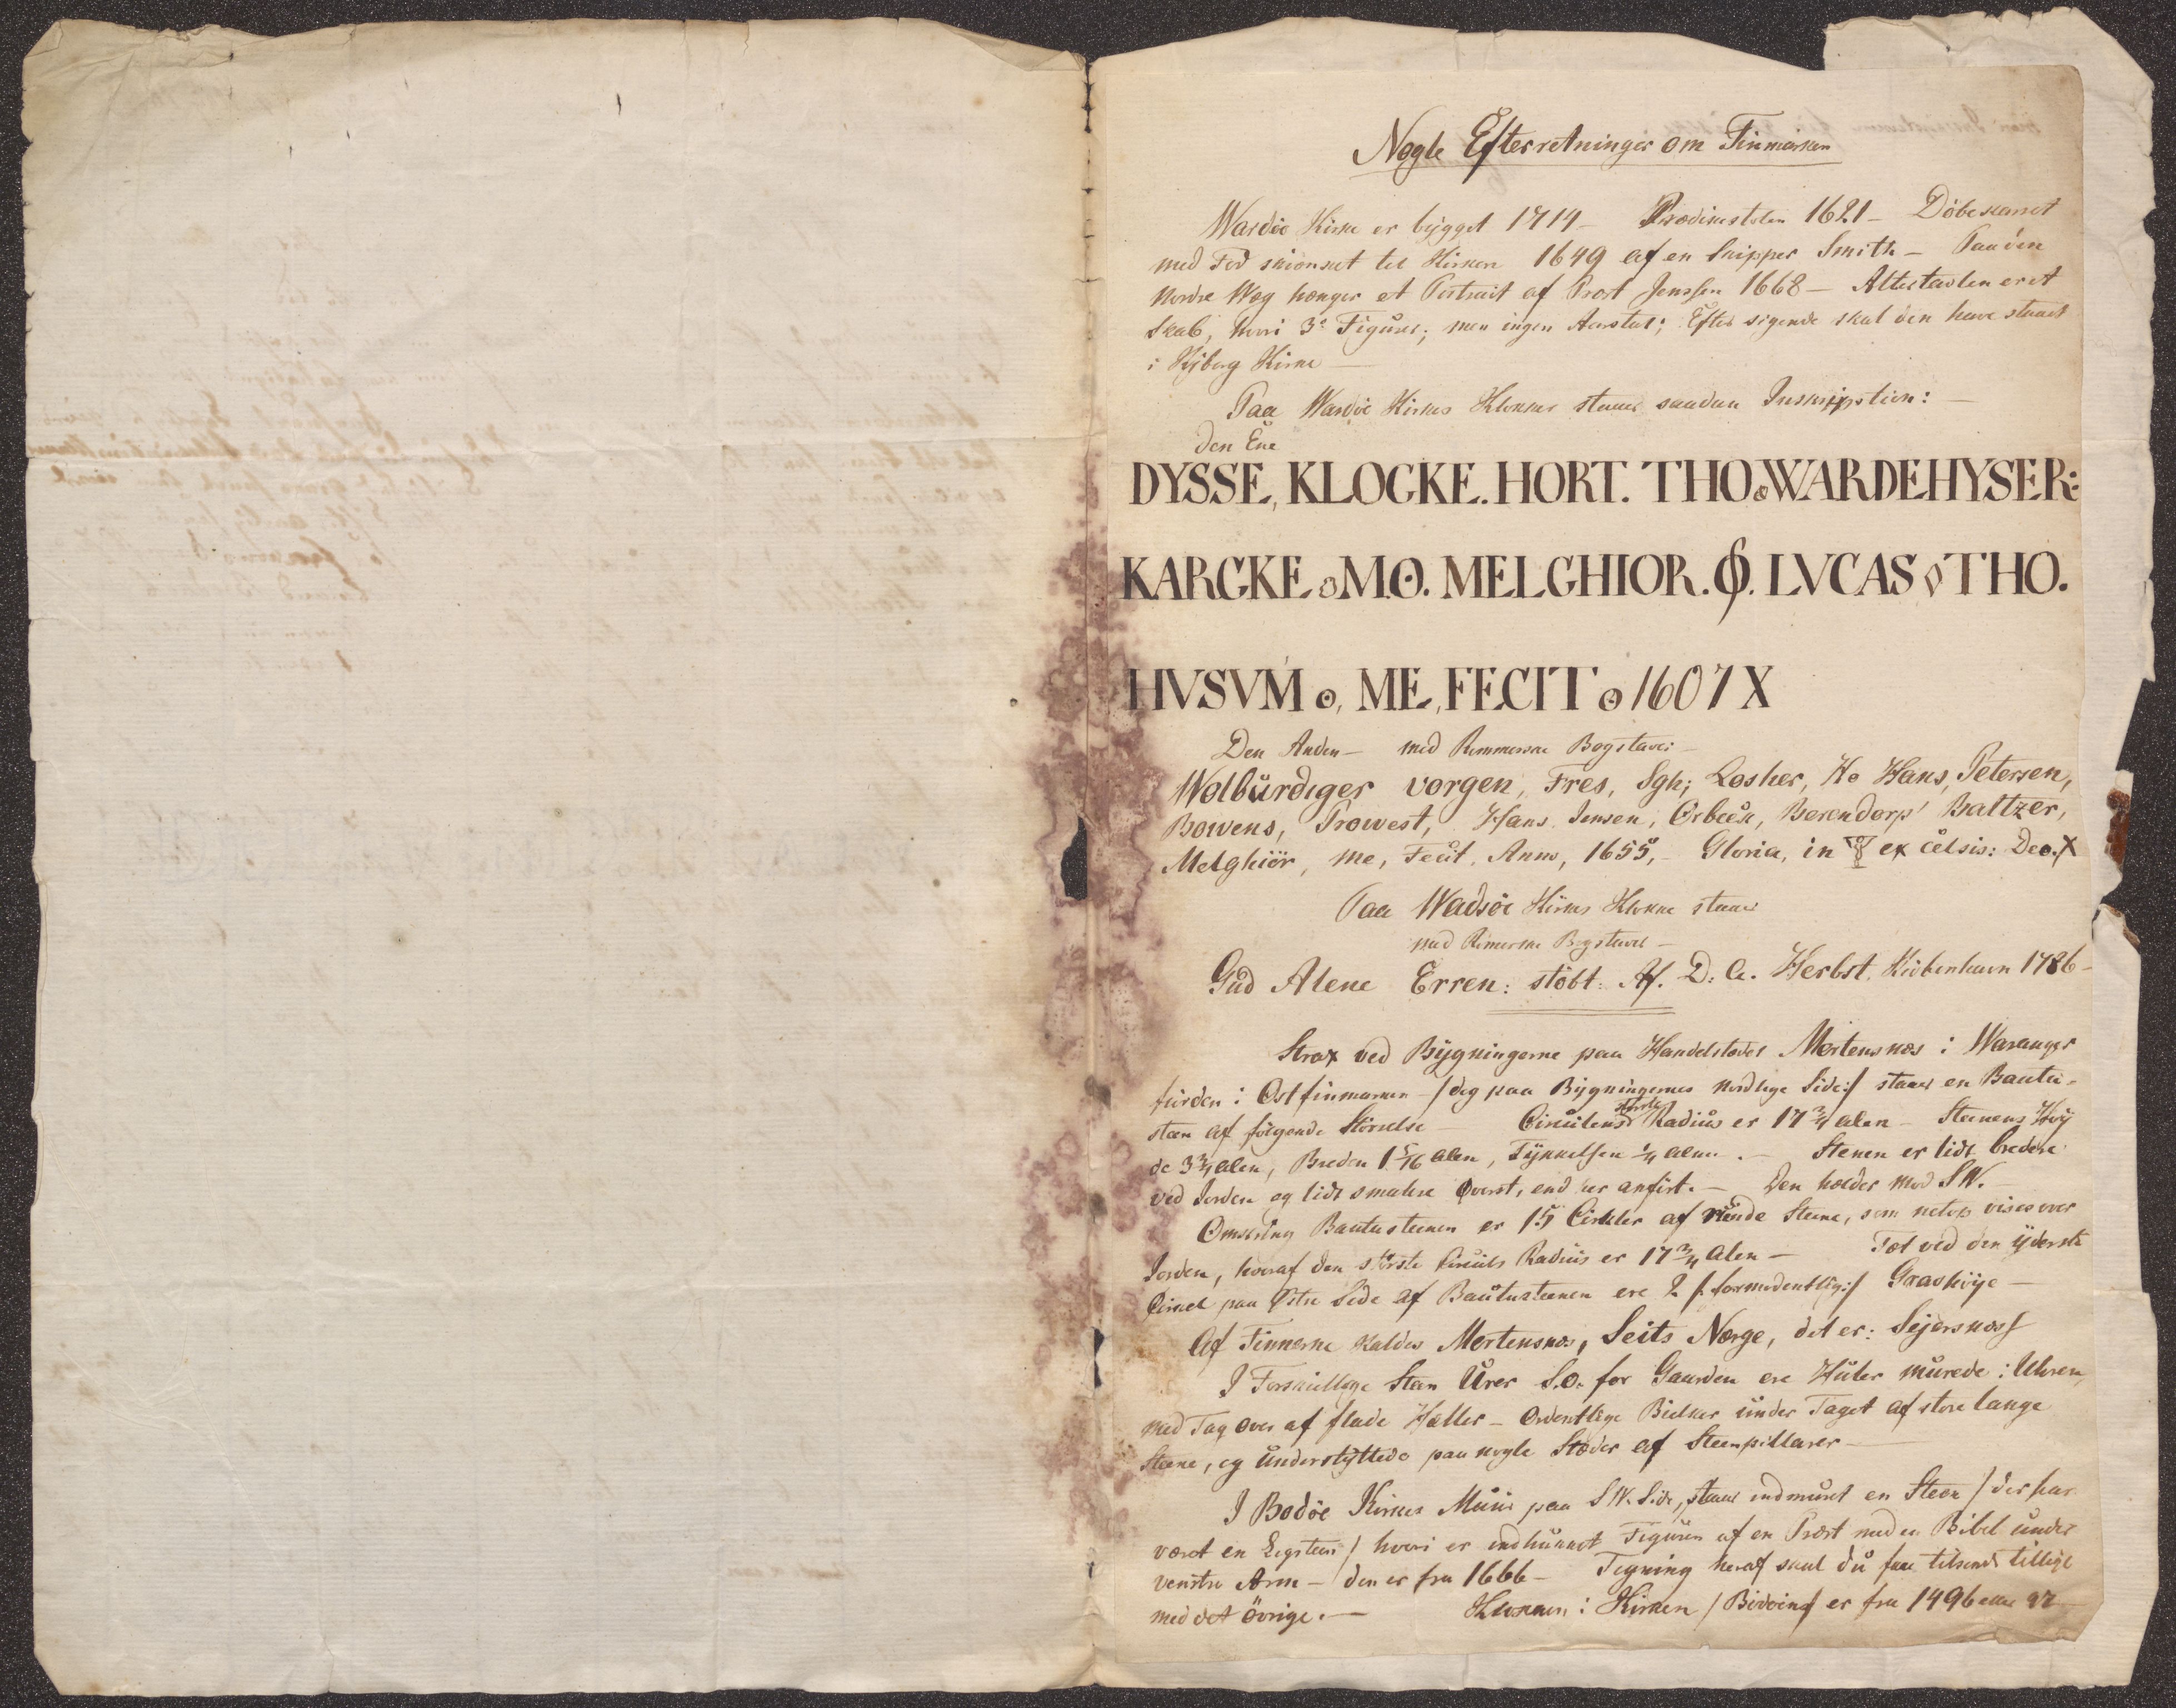 Nogle Efterretninger om Finmarken
Wardöe Kirke er bygget 1714 – Prædikestolen 1621 – Döbekarret
med Fod skiønket til Kirken 1649 af en Skipper Smith – Paa den
Nordre Væg hænger et Portrait af Provst Jenssen 1668 – Altertavlen er et
Skab, hvori 3e Figurer; men ingen Aarstal; Efter sigende skal den have staaet
i Kyberg Kirke –
Paa Wardöe Kirkes Klokker staaer saadan Inskription: –
Den Ene
DYSSE, KLOCKE. HORT. THO. WARDEHYSER:
KARCKE o M.O. MELCHIOR. O. LVCAS o THO.
HVSVM o, ME, FECIT o 1607 X
Den Anden – med Rommerske Bogstaver –
Wolbürdiger vorgen, Fres, Sgh; Losher, Ho Hans, Petersen,
Bowens, Prowest, Hans Jensen, Orbeck, Berendorp Baltzer,
Melghiör, me, Fecit, Anno, 1655, – Gloria, in ex celsis: Deo. X
Paa Wadsöe Kirkes Klokke staaer
med Rimerske Bogstaver –
Gud Alene Erren: stöbt: Af. D: C. Herbst. Kiöbenhavn 1786 –
Strax ved Bygningerne paa Handelstedet Mortensnæs i Waranger
fiorden i Ostfinmarken – /dog paa Bygningernes nordlige Side:/ staaer en Bauta-
steen af følgende Störrelse – Cirkulens störste Radius er 17 3/4 alen – Steenens Höy
de 3 3/4 alen, Breden 1 5/16 alen, Tykkelsen 1/4 alen. – Stenen er lidt bredere
ved Jorden og lidt smalere øverst, end her anfört. – Den helder mod SW. –
Omkring Bautasteenen er 15 Cirkler af runde Steene, som netop vises over
Jorden, hvoraf den störste Cirkuls Radius er 17 3/4 Alen – Tæt ved den yderste
Cirkel paa Østre Side af Bautasteenen ere 2 /:formodentlig:/ Gravhöye –
Af Finnerne kaldes Mortensnæs, Seits Nærge, det er: Sejdesnæs/
I Forskiellige Steen Urer S.O. for Gaarden ere Huler murede i Uhren,
med Tag over af flade Heller – Ordentlige Bielker under Taget af store lange
Steene, og understyttede paa nogle Stæder af Steenpillarer –
I Bodöe Kirkes Muur paa SW. Side, staaer indmuret en Steen / der har
været en Ligsteen / hvori er indhugget Figuren af en Præst med en Bibel under
venstre Arm – den er fra 1666 – Tegning heraf skal du faae tilsendt tillige
med det övrige. – Klokken i Kirken / Bodöens/ er fra 1496 eller 97 –